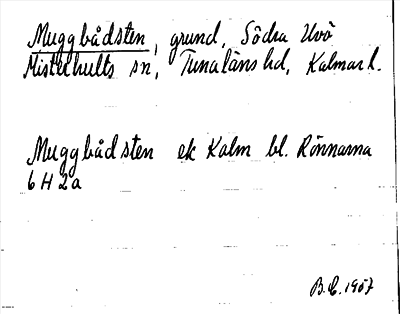 Muggbådsten, grund, Södra Uvö
Misterhults sn, Tunaläns hd, Kalmar l.
Muggbådsten ek Kalm bl. Rönnarna
6 H 2 a
B.E. 1957